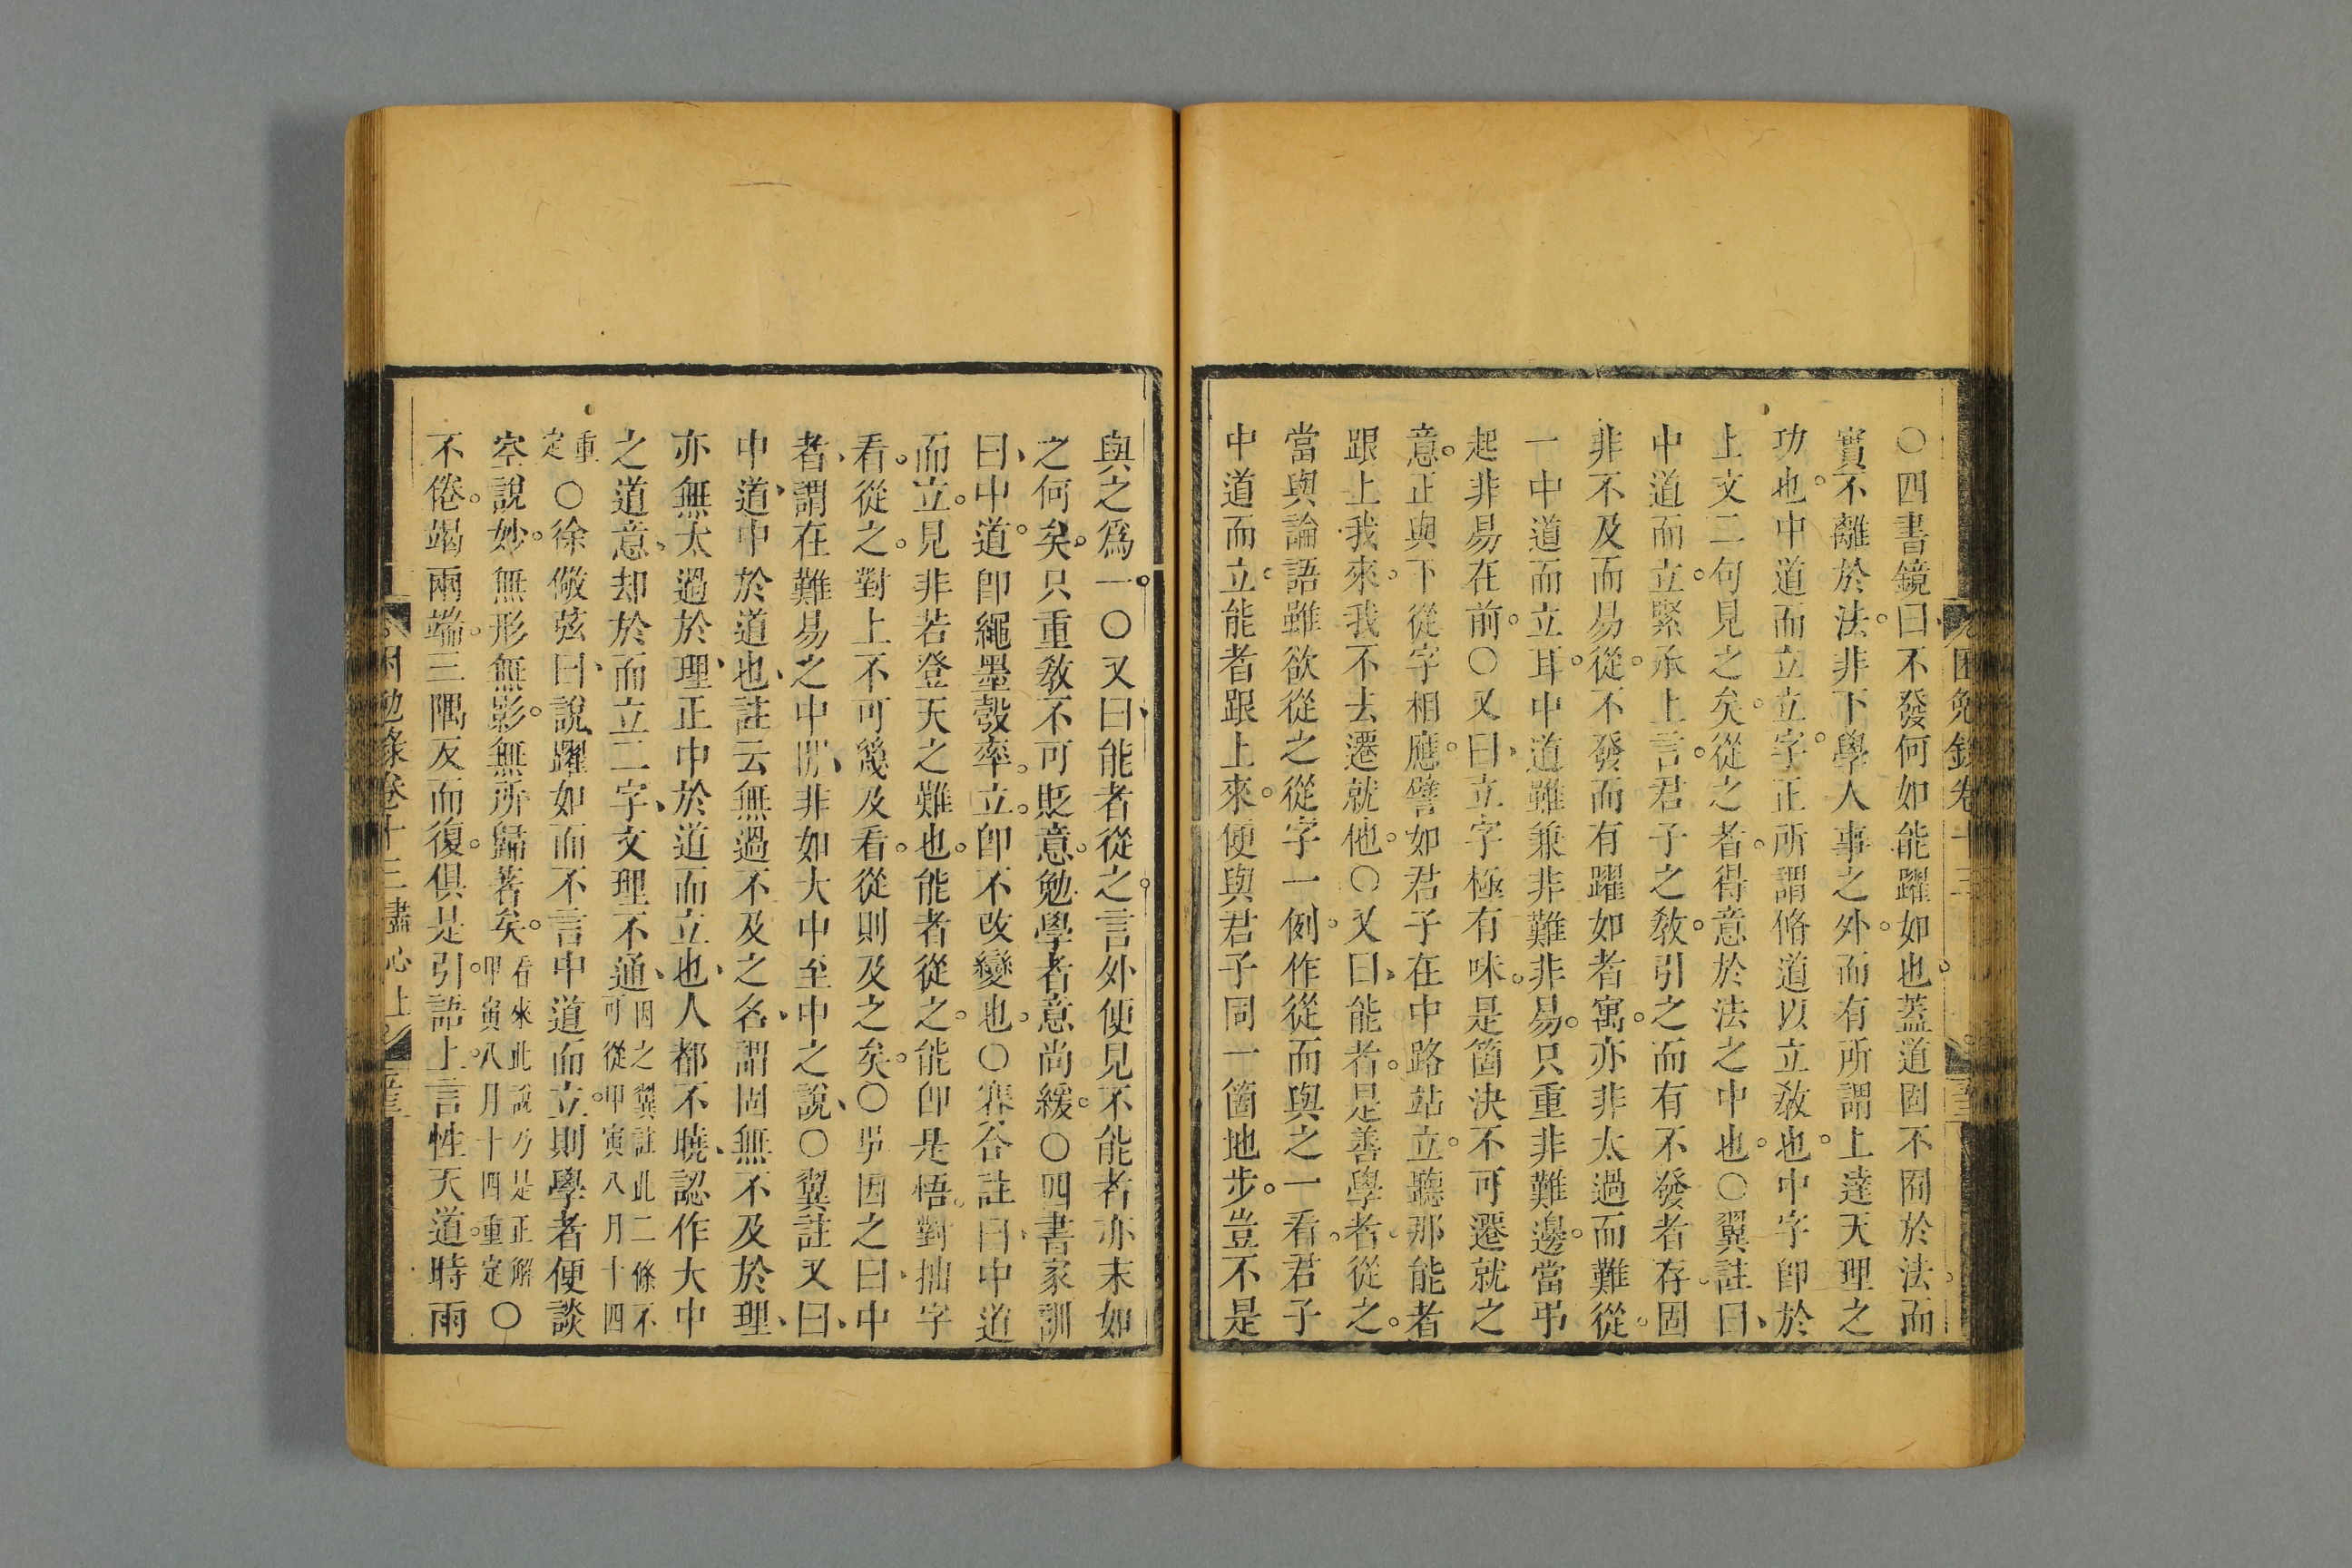 ○四書鏡曰不發何如能躍如也蓋道固不囿於法而
實不離於法非下學人事之外而有所謂上達天理之
功也中道而立立字正所謂脩道以立敎也中字即於
上文二句見之矣從之者得意於法之中也○翼註曰
中道而立緊承上言君子之敎引之而有不發者存固
非不及而易從不發而有躍如者寓亦非太過而難從
一中道而立耳中道雖兼非難非易只重非難邊當弔
起非易在前○又曰立字極有味是箇決不可遷就之
意正與下從字相應譬如君子在中路站立聽那能者
跟上我來我不去遷就他○又曰能者是善學者從之
當與論語雖欲從之從字一例作從而與之一看君子
中道而立能者跟上來便與君子同一箇地步豈不是
與之爲一○又曰能者從之言外便見不能者亦末如
之何矣只重敎不可貶意勉學者意尚緩○四書家訓
曰中道即繩墨彀率立即不改變也○寨谷註曰中道
而立見非若登天之難也能者從之能即是悟對拙字
看從之對上不可幾及看從則及之矣○吳因之曰中
者謂在難易之中間非如大中至中之說○翼註又曰
中道中於道也註云無過不及之名謂固無不及於理
亦無太過於理正中於道而立也人都不曉認作大中
之道意却於而立二字文理不通因之翼註此二條不
可從甲寅八月十四
重
定○徐儆弦曰說躍如而不言中道而立則學者便談
空說妙無形無影無所歸著矣看來此說乃是正解
甲寅八月十四重定○
不倦竭兩端三隅反而復俱是引語上言性天道時雨
困勉錄卷十三盡心上